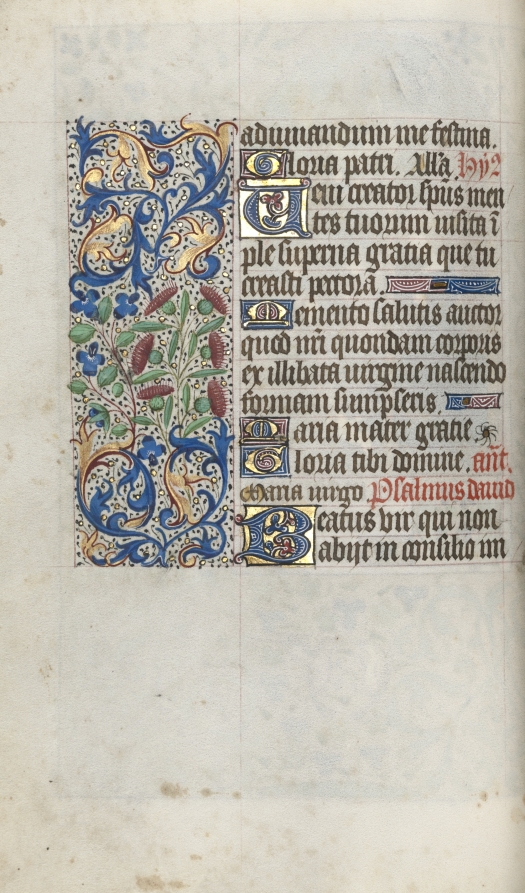 adiuuandum me festina.
Gloria patri. Alla hy2
Ueni creator sp̄us men
tes tuorum uisita ī
ple superna gratia que tu
creasti pectora
Memento salutis auctor
quod nr̄i quondam corporis
ex illibata uirgine nascendo
formam sumpseris.
Maria mater gratie
Gloria tibi domine. ant.
Maria uirgo Psalmus dauid
Beatus vir qui non
abijt in consilio im